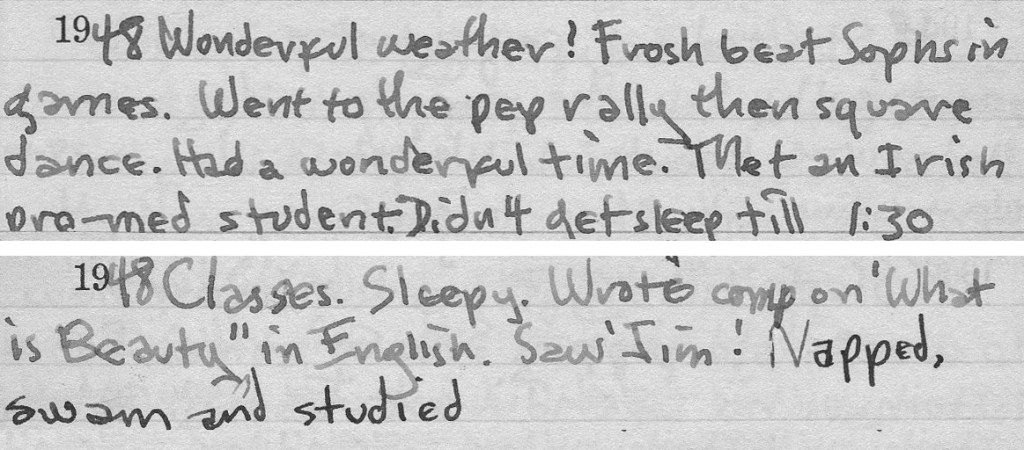 1948 Wonderful weather! Frosh beat Sophs in
games. Went to the pep rally then square
dance. Had a wonderful time. Met an Irish
pre-med student. Didn't get sleep till 1:30
1948 Classes. Sleepy. Wrote comp on "What
is Beauty" in English. Saw Jim! Napped,
swam and studied